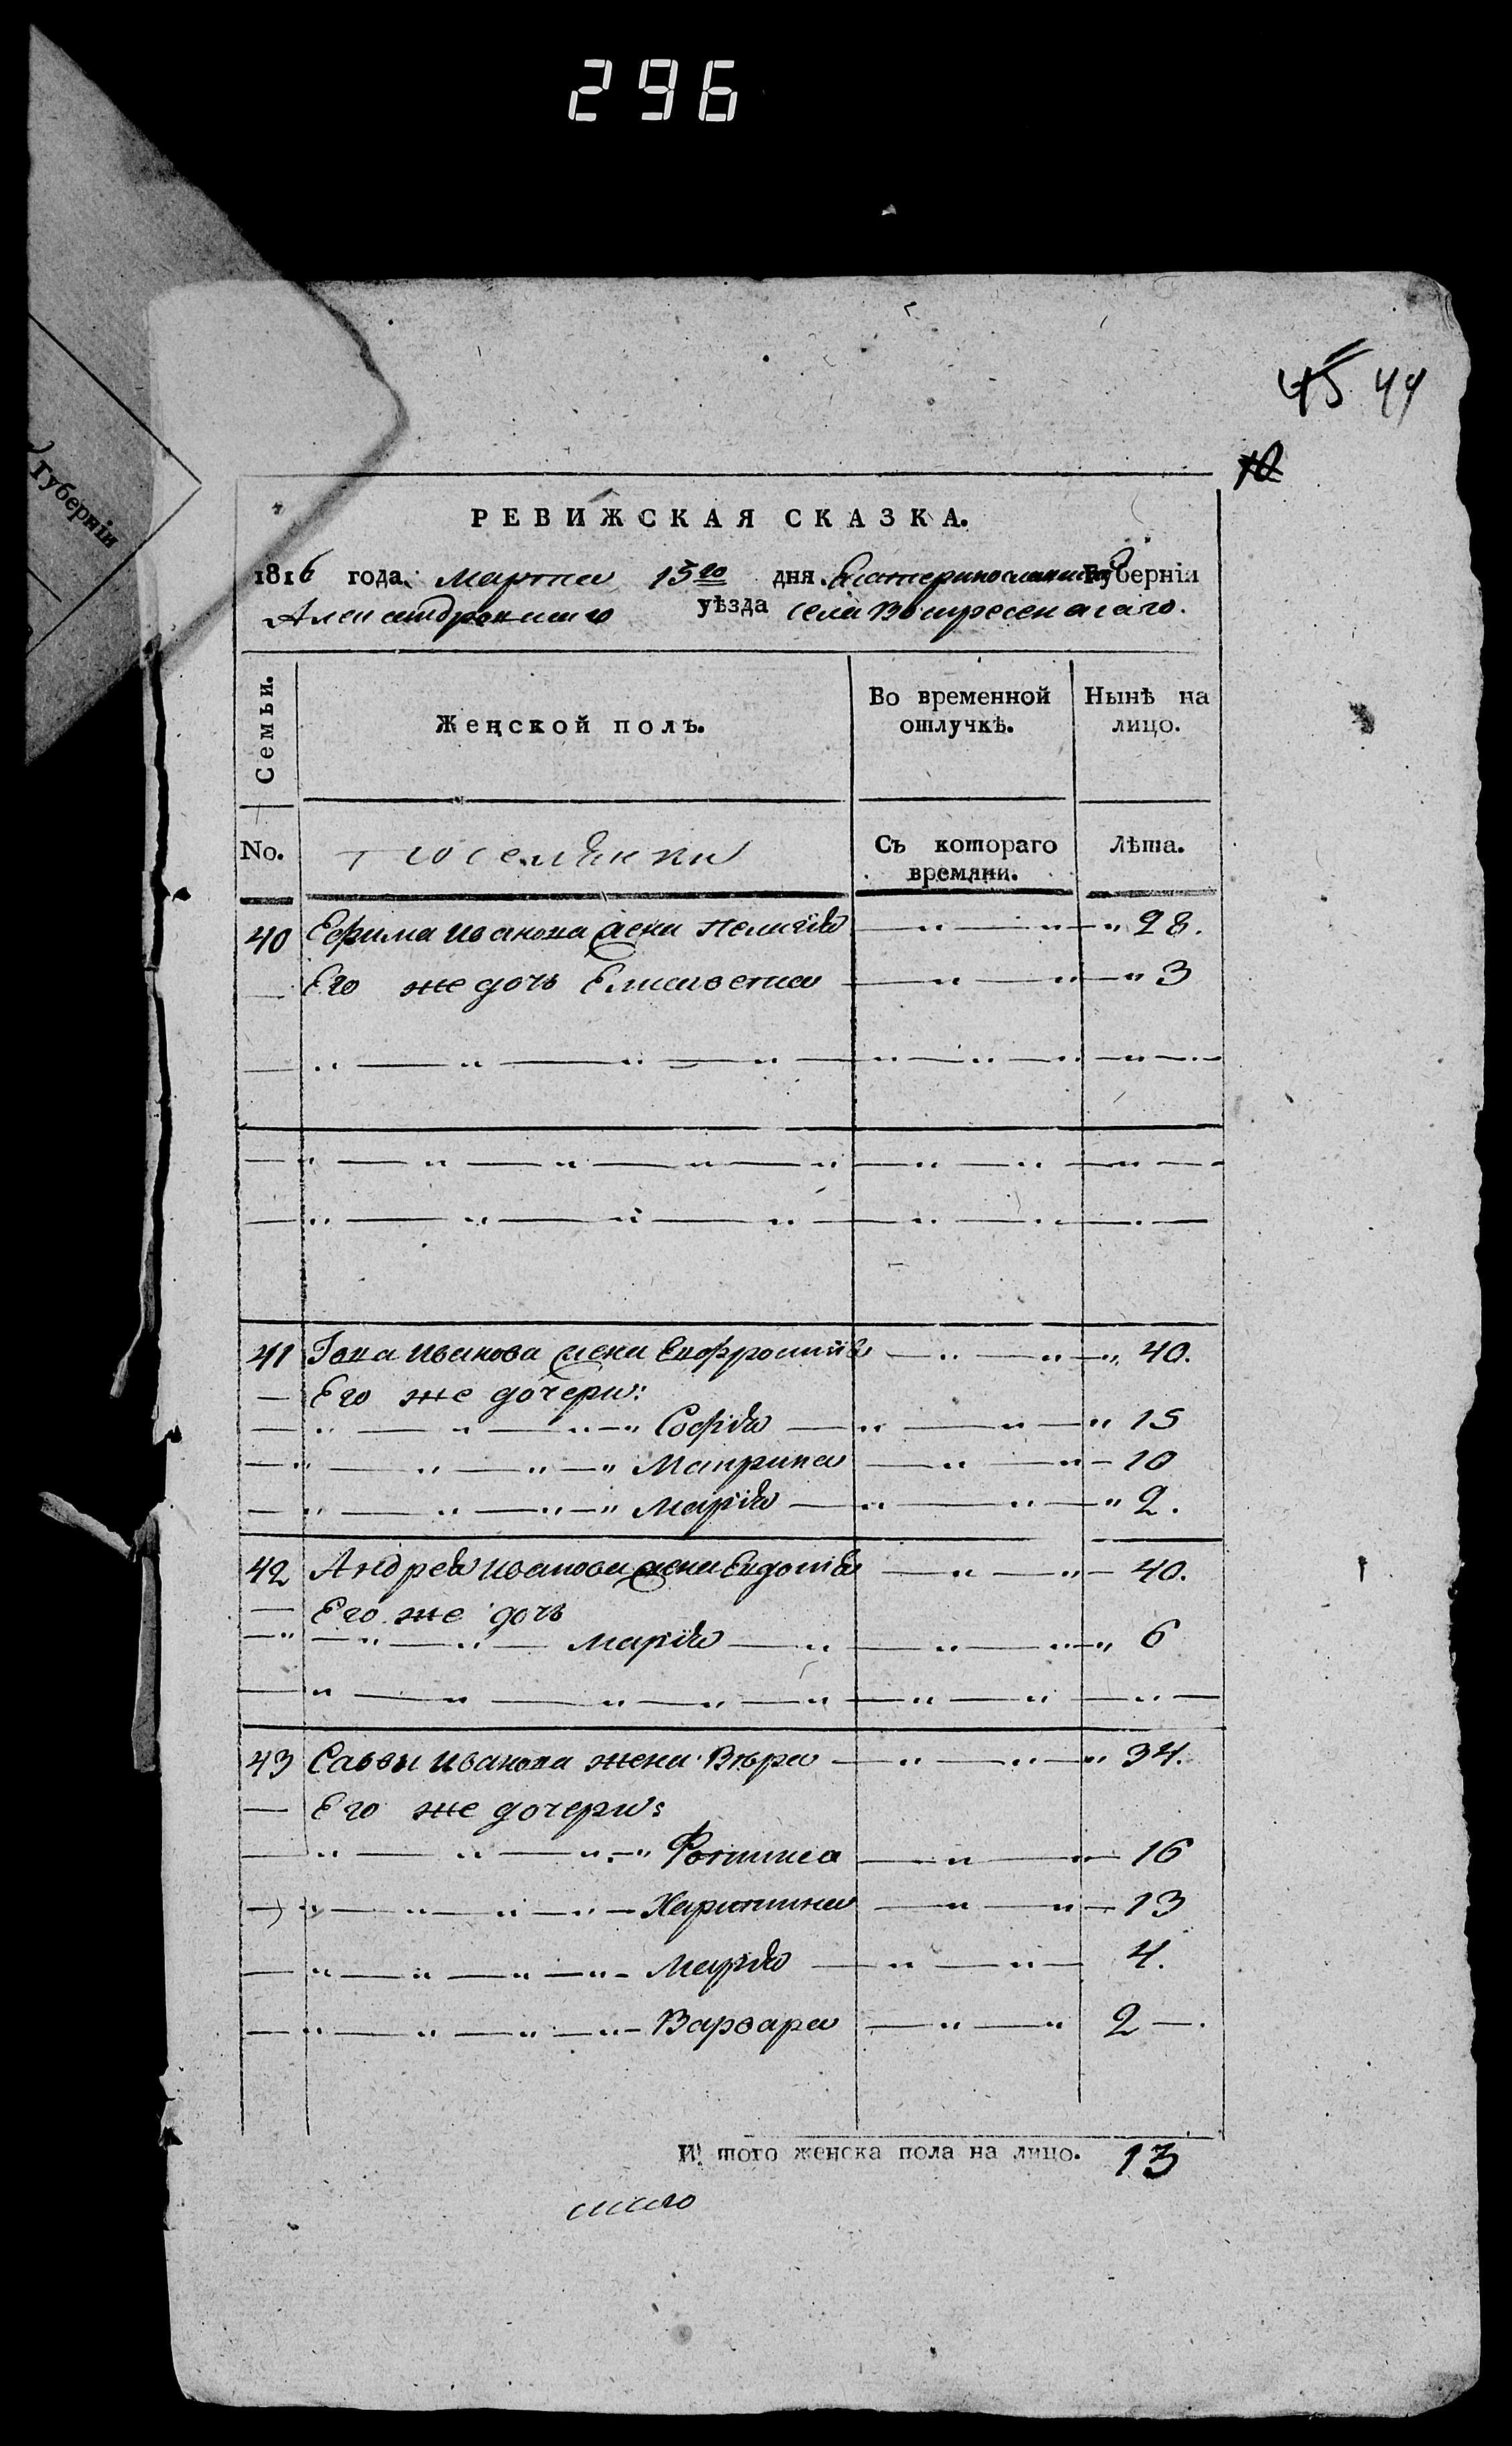 296
Губернїи
45 44
10
РЕВИЖСКАЯ СКАЗКА.
1816 года. Марта 15го дня. Екатеринославской Губернїи
Александровскаго уѣзда села Воскресенскаго.
Семьи. Женской полъ. Во временной отлучкѣ. Нынѣ на лицо.
No. поселянки Съ котораго времяни. Лѣта.
40 Ефима Иванова жена Пелагія 28.
Его же дочь Елисавета 3
41 Іова Иванова жена Евфросинія 40.
Его же дочери:
Софія 15
Матрина 10
Марія 2.
42 Андрея Иванова жена Евдокія 40.
Его же дочь
Марія 6
43 Саввы Иванова жена Вѣра 34.
Его же дочери:
13
Марія 4.
Варвара 2
И того женска пола на лицо. 13